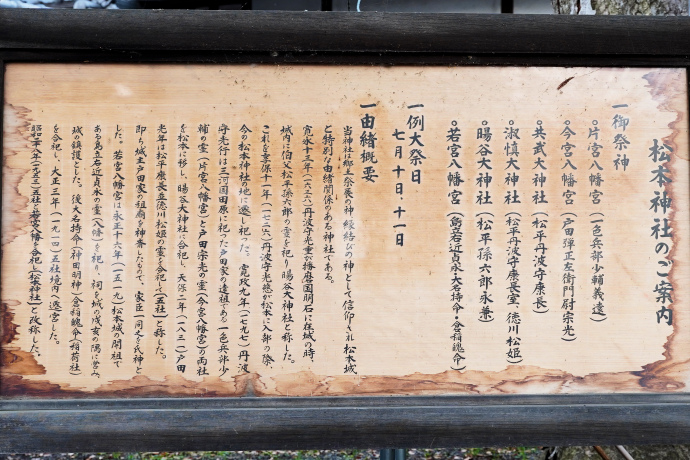 松本神社のご案内
一御祭神
○片宮八幡宮（一色兵部少輔義遠）
○今宮八幡宮（戸田弾正左衛門尉宗光）
○共武大神社（松平丹波守康長）
○淑慎大神社（松平丹波守康長室、徳川松姫）
○暘谷大神社（松平孫六郎永兼）
○若宮八幡宮（島立右近貞永大己持命・倉稲魂命）
一例大祭日
七月十日・十一日
一由緒概要
当神社は郷土発展の神、縁結びの神として信仰され松本城
と特別な由緒関係のある神社である。
寛永十三年（一六三六）丹波守光重が播磨国明石に在城の時、
城内に伯父松平孫六郎の霊を祀り暘谷大神社と称した。
これを享保十一年（一七二六）丹波守光慈が松本に入部の際、
今の松本神社の地に遷し祀った。寛政九年（一七九七）丹波
守光行は三河国田原に祀った戸田家の遠祖である一色兵部少
輔の霊（片宮八幡宮）と戸田宗光の霊（今宮八幡宮）の両社
を松本に移し、暘谷大神社に合祀し、天保二年（一八三一）戸田
光年は松平康長並徳川松姫の霊を合祀して（五社）と称した。
即ち城主戸田家の祖廟の神斎したもので、家臣一同之を氏神と
した。若宮八幡宮は永正十六年（一五一九）松本城の開祖で
ある島立右近貞永の霊（八幡）を祀り、祠を城の戌亥の隅に営み
城の鎮護とした。後大己持命（神田明神）倉稲魂命（稲荷社）
を合祀し、大正三年（一九一四）五社境内へ遷宮した。
昭和二八年（一九五三）五社に若宮八幡を合祀し（松本神社）と改称した。